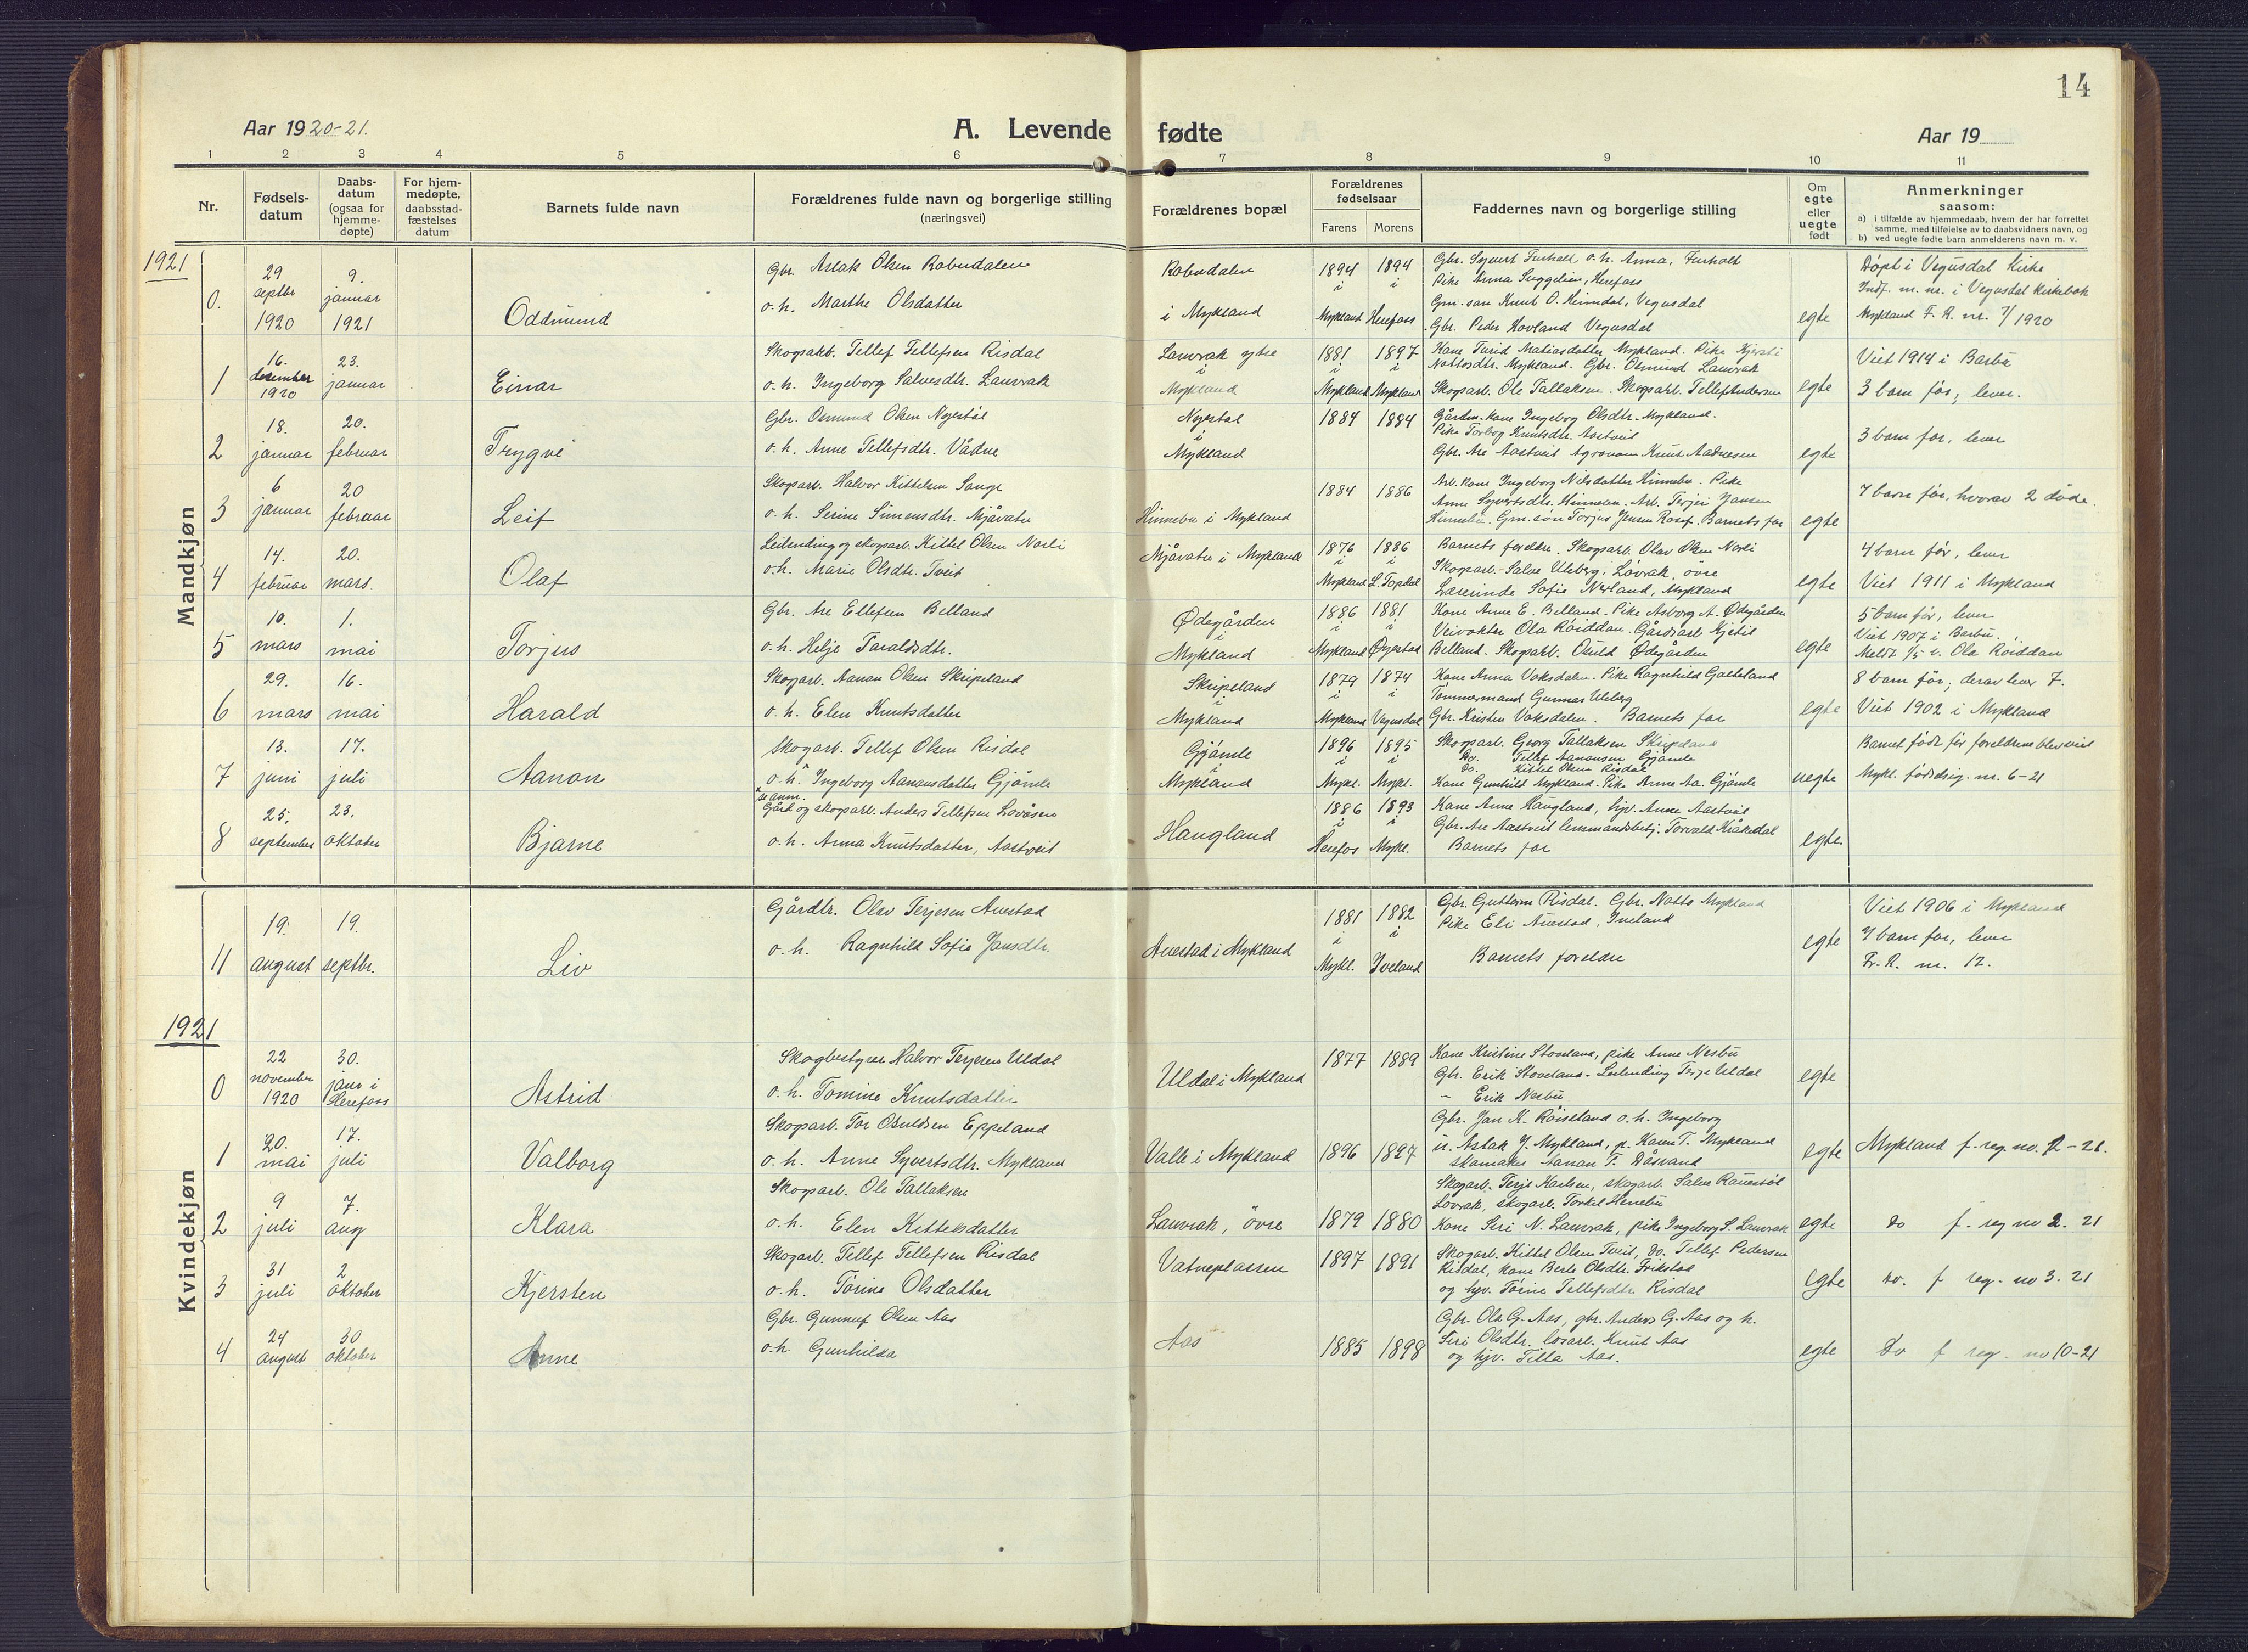 14
Aar 1920-21.
A. Levende fødte
Aar 19
1 2 3 4 5 6 7 8 9 10 11
Nr.
Fødsels-
datum
Daabs-
datum
(ogsaa for
hjemme-
døpte)
For hjem-
medøpte,
daabsstad-
fæstelses
datum
Barnets fulde navn
Forældrenes fulde navn og borgerlige stilling
(næringsvei)
Forældrenes bopæl
Forældrenes
fødselsaar
Farens Morens
Faddernes navn og borgerlige stilling
Om
egte
eller
uegte
født
Anmerkninger
saasom:
a) i tilfælde av hjemmedaab, hvem der har forrettet
samme, med tilføielse av to daabsvidners navn, og
b) ved uegte fødte barn anmelderens navn m. v.
Mandkjøn
1921
0. 29 septbr 1920
9. januar 1921
Oddmund
Gbr. Aslak Olsen Robudalen
o. h. Marthe Olsdatter
Robudalen
i Mykland
1894 i Mykland
1894 i Herefoss
Gbr. Syvert Furholt o. h. Anna, Furholt
Pike Anna Suggelien, Herefoss
Gm. søn Knut O. Heimdal, Vegusdal
Gbr. Peder Hovland Vegusdal
egte
Døpt i Vegusdal Kirke
Indf. m. nr. i Vegusdal Kirkebok
Mykland F. R. nr. 7/1920
1 16. desember 1920
23. januar
Einar
Skogsarb. Tellef Tellefsen Risdal
o. h. Ingeborg Salvesdtr. Lauvrak
Lauvrak ytre
i
Mykland
1881 i Mykland
1897 i Mykland
Kone Turid Matiasdatter Mykland. Pike Kjersti
Nottosdtr. Mykland. Gbr. Osmund Lauvrak
Skogsarb. Ole Tallaksen. Skogsarb. Tellef Andersen
egte
Viet 1914 i Barbu
3 barn før, lever.
2 18. januar
20. februar
Trygve
Gbr. Osmund Olsen Nystøl
o. h. Anne Tellefsdtr. Vådne
Nystøl
i
Mykland
1884 1884
Gårdm. kone Ingeborg Olsdtr. Mykland.
Pike Torbog Knutsdtr. Aastveit
Gbr. Are Aastveit Agronom Knut Aadnesen
egte
3 barn før, lever
3 6 januar
20 februar
Leif
Skogsarb. Halvor Kittelsen Sange
o. h. Serine Simensdtr. Mjåvatn
Hinnebu i Mykland
1884 1886
Arb. kone Ingeborg Nilsdatter Hinnebu. Pike
Anne Syvertsdtr. Hinnebu. Arb. Terjei Jansen
Hinnebu. Gm. søn Torjus Jensen . Barnets far
egte
7 barn før, hvorav 2 døde.
4 14. februar
20. mars.
Olaf
Leilending og skogsarb. Kittel Olsen Norli
o. h. Marie Olsdtr. Tveit
Mjåvatn i Mykland
1876 i Mykland
1886 i L. Topdal
Barnets foreldre. Skogsarb. Olav Olsen Norli
Skogsarb. Salve Uleberg, Løvrak, övre
Lærerinde Sofie Nerland, Mykland
egte
4 barn før, lever
Viet 1911 i Mykland
5 10. mars
1. mai
Torjus
Gbr. Are Ellefsen Belland
o. h. Helje Taraldsdtr.
Ødegården
i
Mykland
1886 i Mykland
1881 i Øyestad
Kone Anne E. Belland. Pike Asborg A. Ødegården
Veivokter Ola Röiddan. Gårdsarb Kjetil
Belland. Skogsarb. Osuld Ødegården
egte
5 barn før, lever
Viet 1907 i Barbu.
Meldt 1/5 v. Ola Röiddan
6 29. mars
16. mai
Harald
Skogarb. Aanan Olsen Skripeland
o. h. Elen Knutsdatter
Skripeland
i
Mykland
1879 i Mykland
1874 i Vegusdal
Kone Anna Voksdalen. Pike Ragnhild Gaateland
Tømmermand Gunnar Uleberg
Gbr. Kristen Voksdalen. Barnets far
egte
8 barn før, derav lever 7.
Viet 1902 i Mykland
7 13. juni
17. juli
Aanon
Skogarb. Tellef Olsen Risdal
o. h. Ingeborg Aanonsdatter Gjömle
Se anm.
Gjömle
i
Mykland
1896 i Mykl.
1895 i Mykl.
Skogsarb. Georg Tallaksen Skripeland
do. Tellef Aanonsen Gjömle
do. Kittel Olsen Risdal
Kone Gunhild Mykland. Pike Anne Aa. Gjömle
uegte
Barnet født før foreldrene blev viet
Mykl. fødselsreg. nr. 6-21
8 25. september
23. oktober
Bjarne
Gård og skogsarb. Anders Tellefsen Lövåsen
o. h. Anna Knutsdatter, Aastveit
Haugland
1886 i Herefos
1893 i Mykl.
Kone Anne Haugland, hjv. Anne Aastveit
Gbr. Are Aastveit lensmandsbetj. Torvald Kråkedal
Barnets far
egte.
Kvindekjøn
11 19. august
19. septbr.
Liv
Gårdbr. Olav Terjesen Auestad
o. h. Ragnhild Sofie Jansdtr.
Auestad i Mykland
1881 i Mykl.
1882 i Iveland
Gbr. Guttorm Risdal. Gbr. Notto Mykland
Pike Eli Auestad, Iveland
Barnets foreldre
egte
Viet 1906 i Mykland
7 barn før, lever
Fr. R. nr. 12.
1921
0 22 november 1920
30. janr i Herefoss
Astrid
Skogbestyrer Halvor Terjesen Uldal
o. h. Tomine Knutsdatter
Uldal i Mykland
1877 1889
Kone Kristine Stoveland, pike Anne Nesbu
Gbr. Erik Stoveland. Leilending Terje Uldal
" Erik Nesbu
egte
1 20. mai
17. juli
Valborg
Skogsarb. Tor Osuldsen Eppeland
o. h. Anne Syvertsdtr. Mykland
Valle i Mykland
1896 1897
Gbr. Jan K. Röiseland o. h. Ingeborg
u. Aslak J. Mykland, p. Karen T. Mykland
skomaker Aanan T. Dåsvand
egte
Mykland f. reg. no. 2-21.
2 9 juli
7. aug
Klara
Skogsarb. Ole Tallaksen
o. h. Elen Kittelsdatter
Lauvrak, övre
1879 1880
Skogarb. Terje Karlsen, skogarb. Salve Rauestöl
Lovrak, skogarb. Torkel Henebu
Kone Siri N. Lauvrak, pike Ingeborg S. Lauvrak
egte
do f. reg no 2. 21
3 31 juli
2 oktober
Kjersten
Skogarb. Tellef Tellefsen Risdal
o. h. Torine Olsdatter
Vatneplassen
1897 1891
Skogarb. Kittel Olsen Tveit, do. Tellef Pedersen
Risdal, kone Berte Olsdtr. Frikstad
og hjv. Torine Tellefsdtr Risdal
egte
do. f reg. no 3. 21
4 24 august
30 oktober
Anne
Gbr. Gunnuf Olsen Aas
o. h. Gunhilda
Aas
1885 1898
Gbr. Ola G. Aas, gbr. Anders G. Aas og h.
Siri Olsdtr. løsarb. Knut Aas
og hjv. Tilla Aas.
egte
do f reg. no 10-21